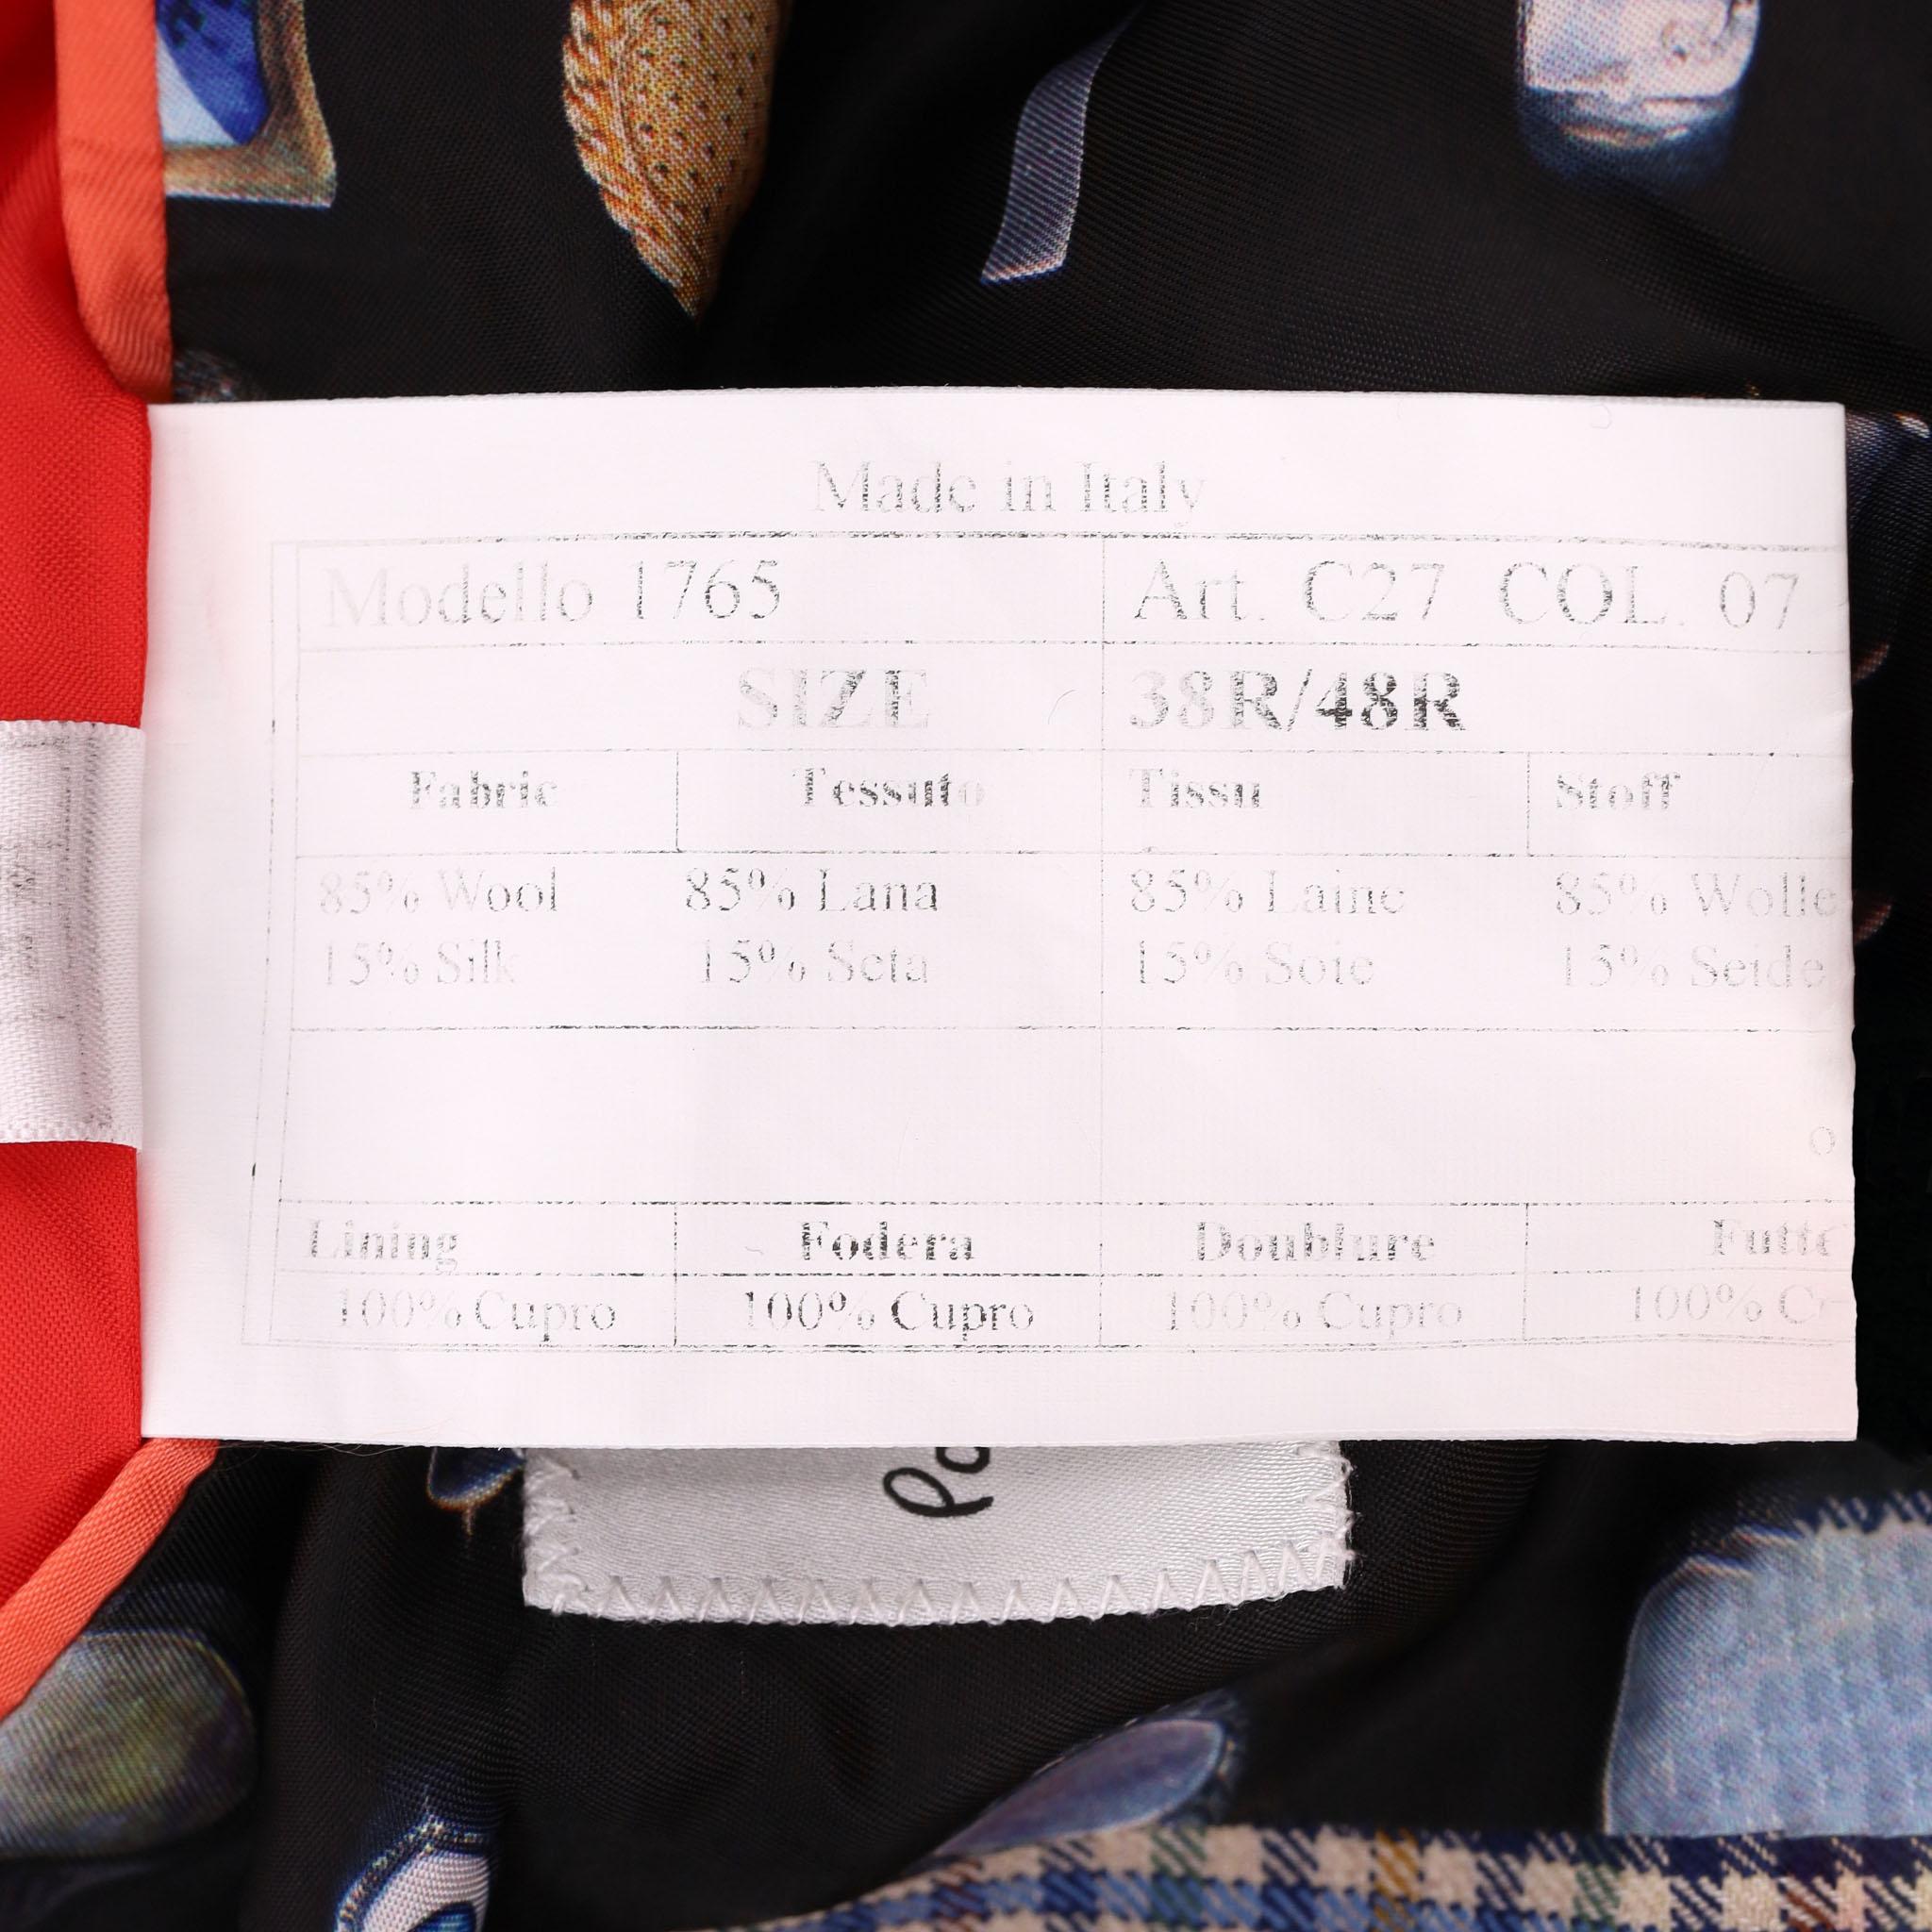 Made in Italy
Modello 1765 Art. C27 COL. 07
SIZE 38R/48R
Fabric Tessuto Tissu Stoff
85% Wool 85% Lana 85% Laine 85% Wolle
15% Silk 15% Seta 15% Soie 15% Seide
Lining Fodera Doublure
100% Cupro 100% Cupro 100% Cupro 100%